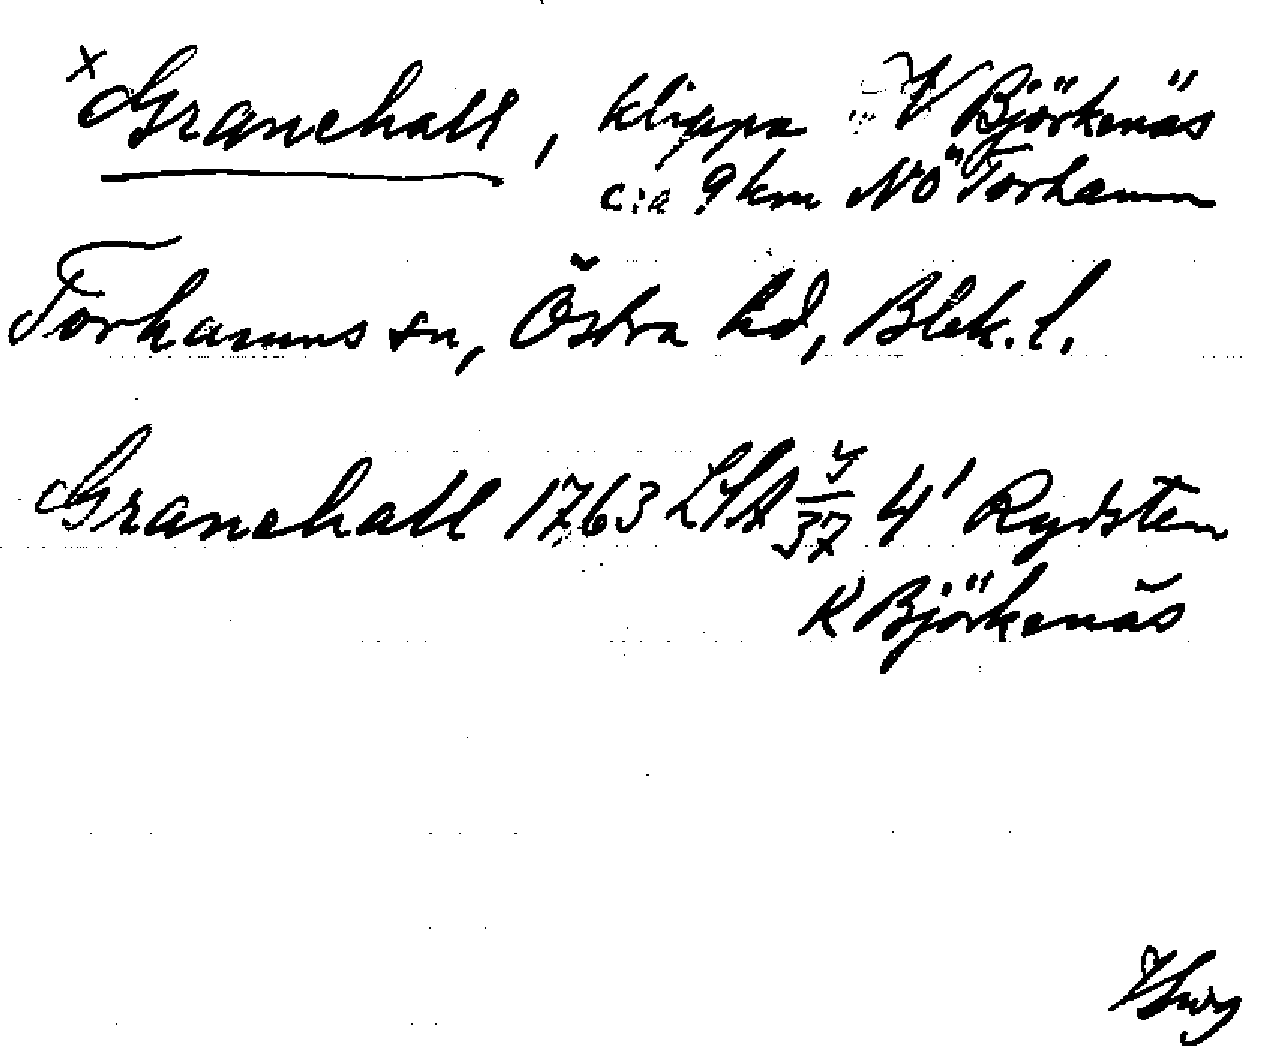 x Granehall, klippa V Björkenäs
c:a 9 km NÖ Torhamn
Torhamns sn, Östra hd, Blek. l.
Granehall 1763 LSA 37 4' Rydsten
K Björkenäs